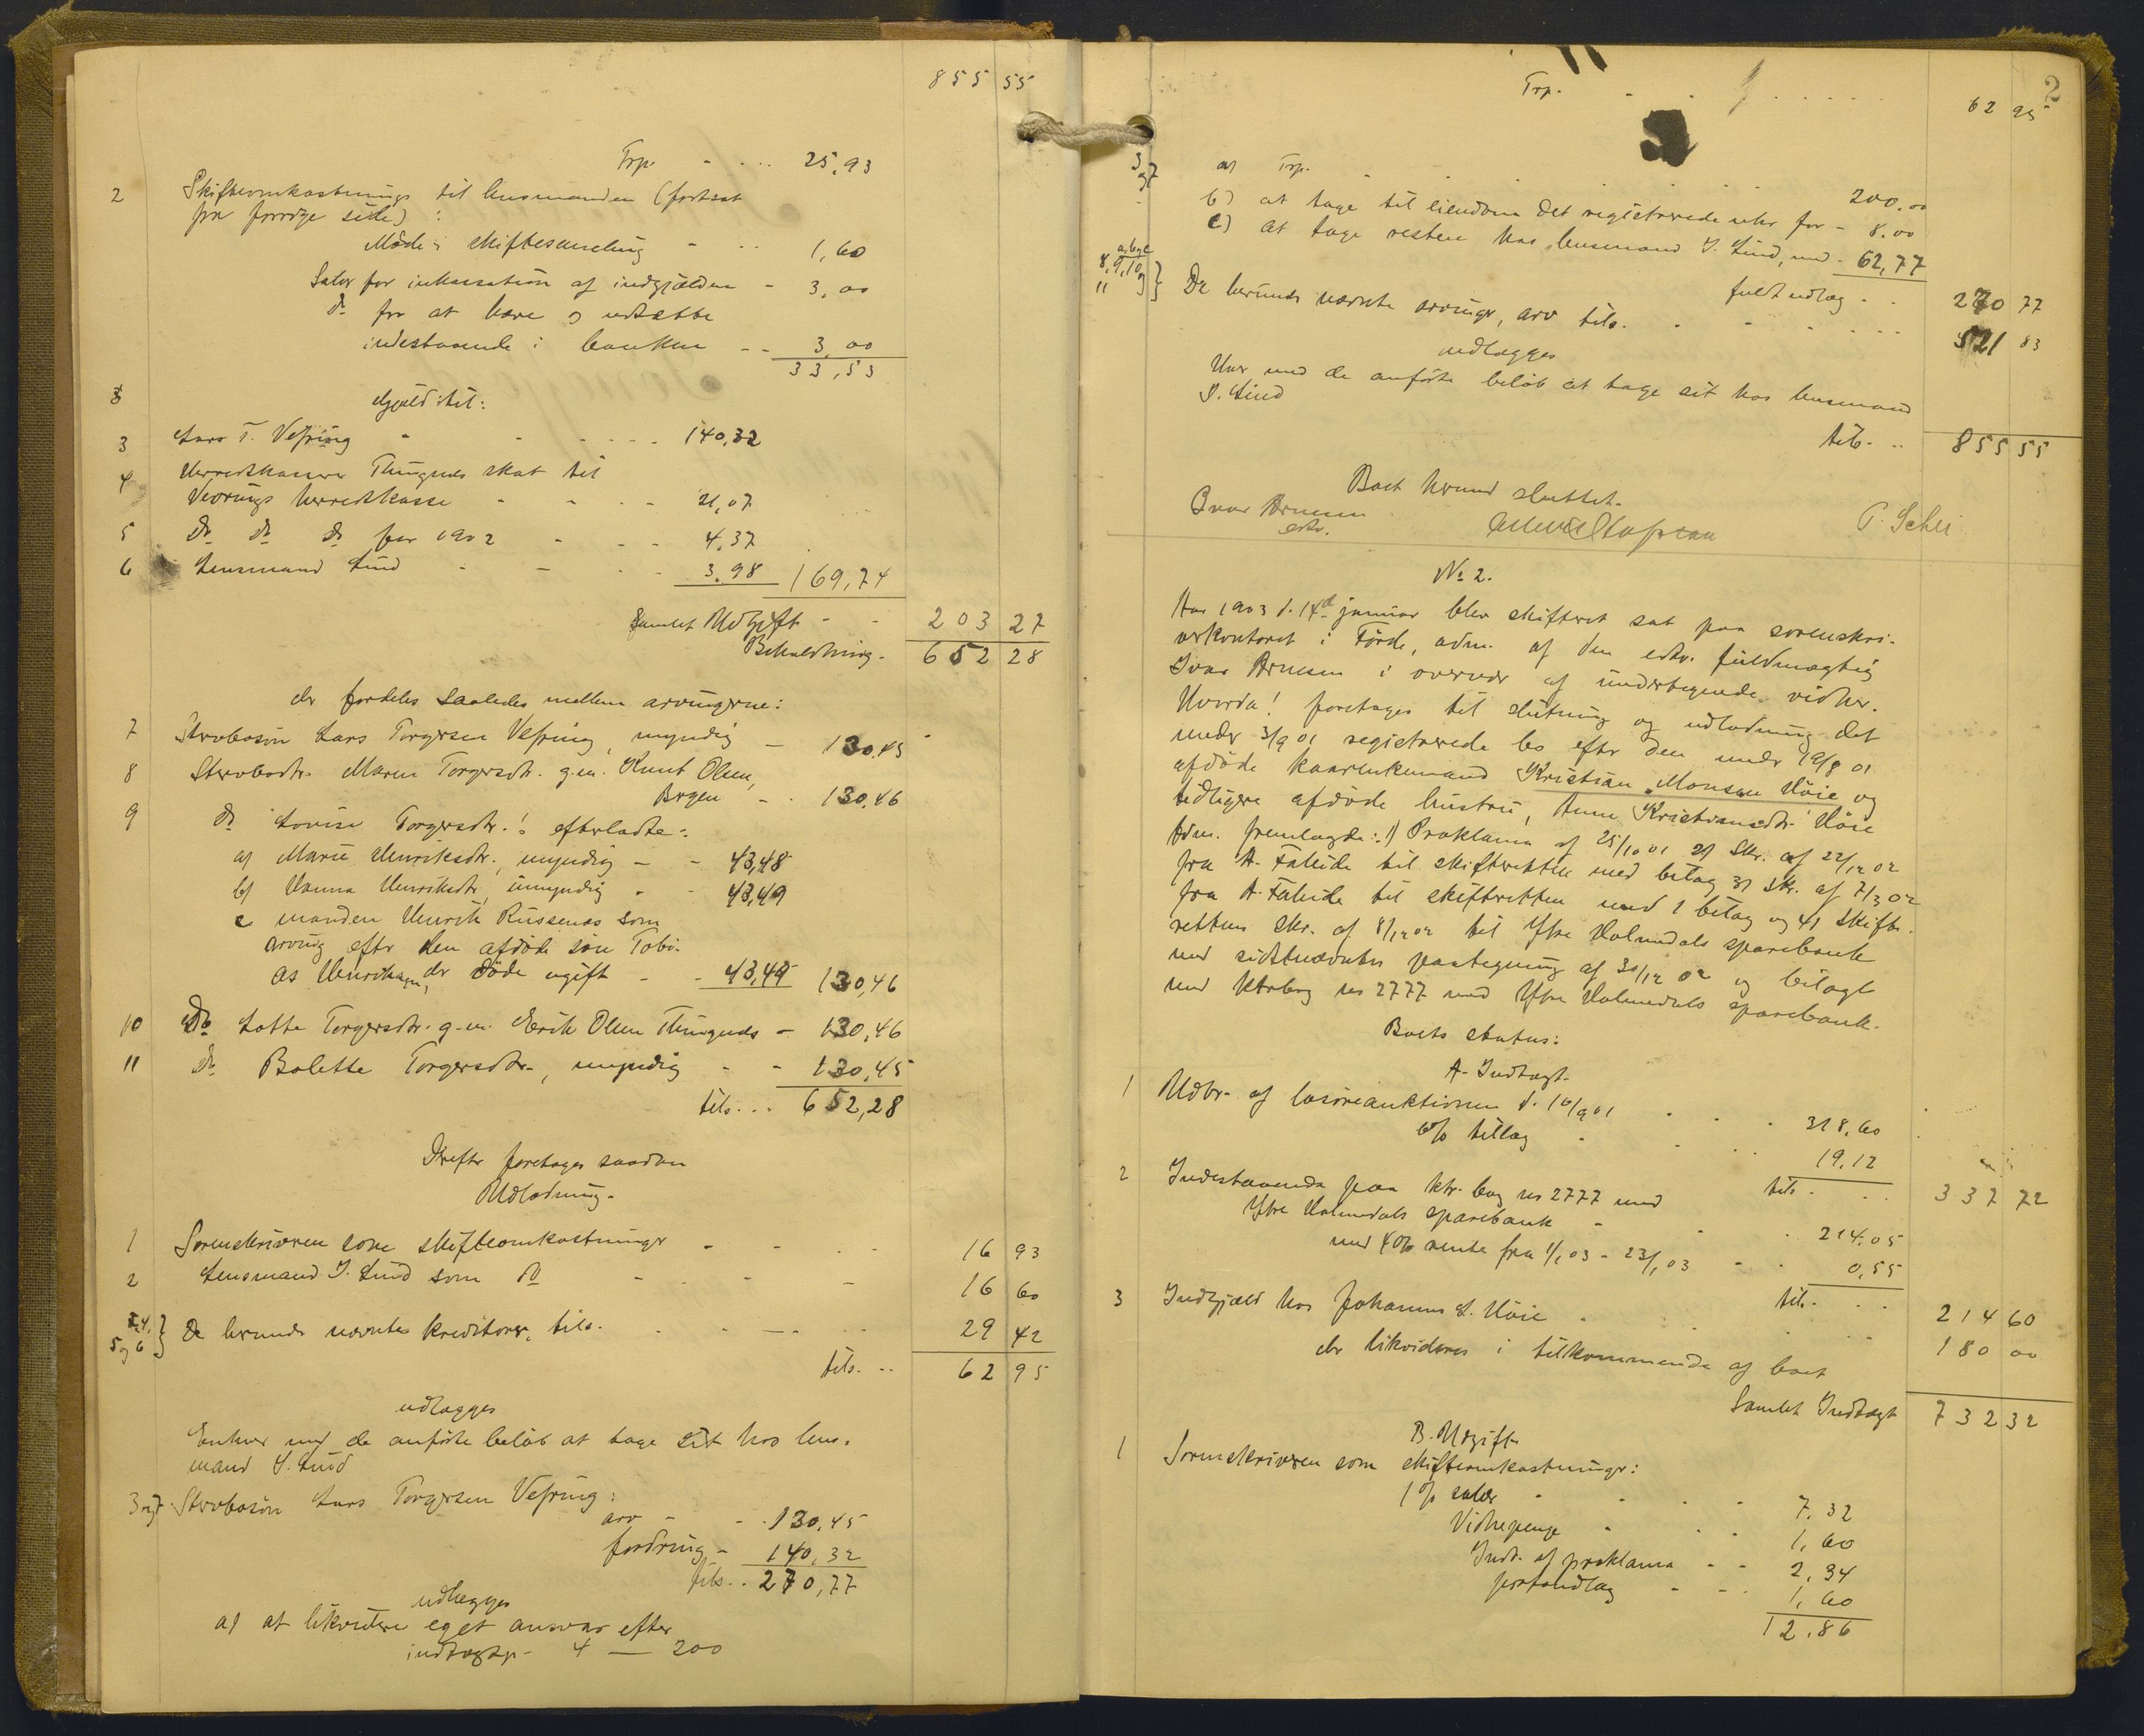 855 55
Trp. - ... 25,93
2 Skifteomkostninger til lensmanden (fortsat
fra forrige side):
Møde i skiftesamling - .. 1,60
Salær for inkassation af indgjælden - 3,00
do for at hæve og udsætte
indestaaende i banken -- 3,00
33,53
Gjæld til:
3 Lars T. Vefring - - - ... 140,32
4 Herredskasserer Thingnes skat til
Vevrings herredskasse - - - - 21,07
5 do do do for 1902 - - - 4,37
6 Lensmand Lind - - - - 3,98 169,74
Samlet Udgift - - 203 27
Beholdning - 652 28
der fordeles saaledes mellem arvingerne:
7 Sterbosøn Lars Torgersen Vefring, myndig - 130,45
8 Sterbodtr. Maren Torgersdtr. g.m. Knut Olsen,
Bergen - . 130,46
9 do Lovise Torgersdtr.! efterladte:
a) Marie Henriksdtr., myndig - - 43,48
b) Hanna Henriksdtr, umyndig - - 43,49
c manden Henrik Russenes som
arving efter den afdøde søn Tobi-
as Henriksen, der døde ugift - - 43,49 130,46
10 do Lotte Torgersdtr. g.m. Erik Olsen Thingnes - 130,46
11 do Bolette Torgersdtr., umyndig - - 130,45
tils... 652,28
Derefter foretages saadan
Udlodning.
1 Sorenskriveren som skifteomkostninger - - . . 16 93
2 Lensmand J. Lind som do - - - - 16 60
3,4,
5 og 6 } De herunder nævnte kreditorer, tils. . . - -- .. 29 42
tils. .. 62 95
udlægges
Enhver med de anførte beløb at tage sit hos lens-
mand J. Lind
3 og 7 Sterbosøn Lars Torgersen Vefring:
arv - - . 130,45
fordring - 140,32
tils.. 270,77
udlægges
a) at likvidere eget ansvar efter
indtægtsp. 4 — 200
2
Trp. - . . . . . . 62 95
3
og 7 a) Trp. . . . . . . 200,00
b) at tage til eiendom det registrerede uhr for - 8,00
c) at tage resten hos lensmand J. Lind, med - 62,77
fuldt udlæg . . 270 77
8, 9 a, b og c, 10 og
11 } De herunder nævnte arvinger, arv tils. . - - . . . . 521 83
udlægges
Hver med de anførte beløb at tage sit hos lensmand
J. Lind
tils. .. 855 55
Boet hermed sluttet.
Ivar Arnesen
edsv.
P. Schei
No 2.
Aar 1903 d. 14d januar blev skifteret sat paa sorenskri-
verkontoret i Førde, adm. af den edsv. fuldmægtig
Ivar Arnesen i overvær af undertegnede vidner.
Hvorda! foretages til slutning og udlodning det
under 3/9 01 registrerede bo efter den under 19/8 01
afdøde kaarenkemand Kristian Monsen Høie og
tidligere afdøde hustru, Anne Kristiansdtr. Høie
Adm. fremlagde: 1) Proklama af 25/10 01 2) Skr. af 22/12 02
fra A. Faleide til skifteretten med bilag 3) Skr. af 7/3 02
fra A. Faleide til skifteretten med 1 bilag og 4) Skifte-
rettens skr. af 8/12 02 til Ytre Holmedals sparebank
med sidstnævntes paategning af 30/12 02 og bilagt
med ktrbog no 2777 med Ytre Holmedals sparebank.
Boets status:
A. Indtægt.
1 Udbr. af løsøreauktionen d. 10/9 01 . . . . 318,60
6% tillæg . . . . 19,12
tils. . . . 337 72
2 Indestaaende paa ktr. bog no 2777 med
Ytre Holmedals sparebank - . . 214,05
med 4% rente fra 1/1 03 - 23/1 03 - . . 0,55
tils. . . . 214 60
3 Indgjæld hos Johannes L. Høie . . . . . 180 00
der likvideres i tilkommende af boet
Samlet Indtægt 732 32
B. Udgift.
1 Sorenskriveren som skifteomkostninger:
1% salær - . . - 7,32
Vidnepenge - . . 1,60
Indr. af proklama - - 2,34
portoudlæg - - . 1,60
12,86